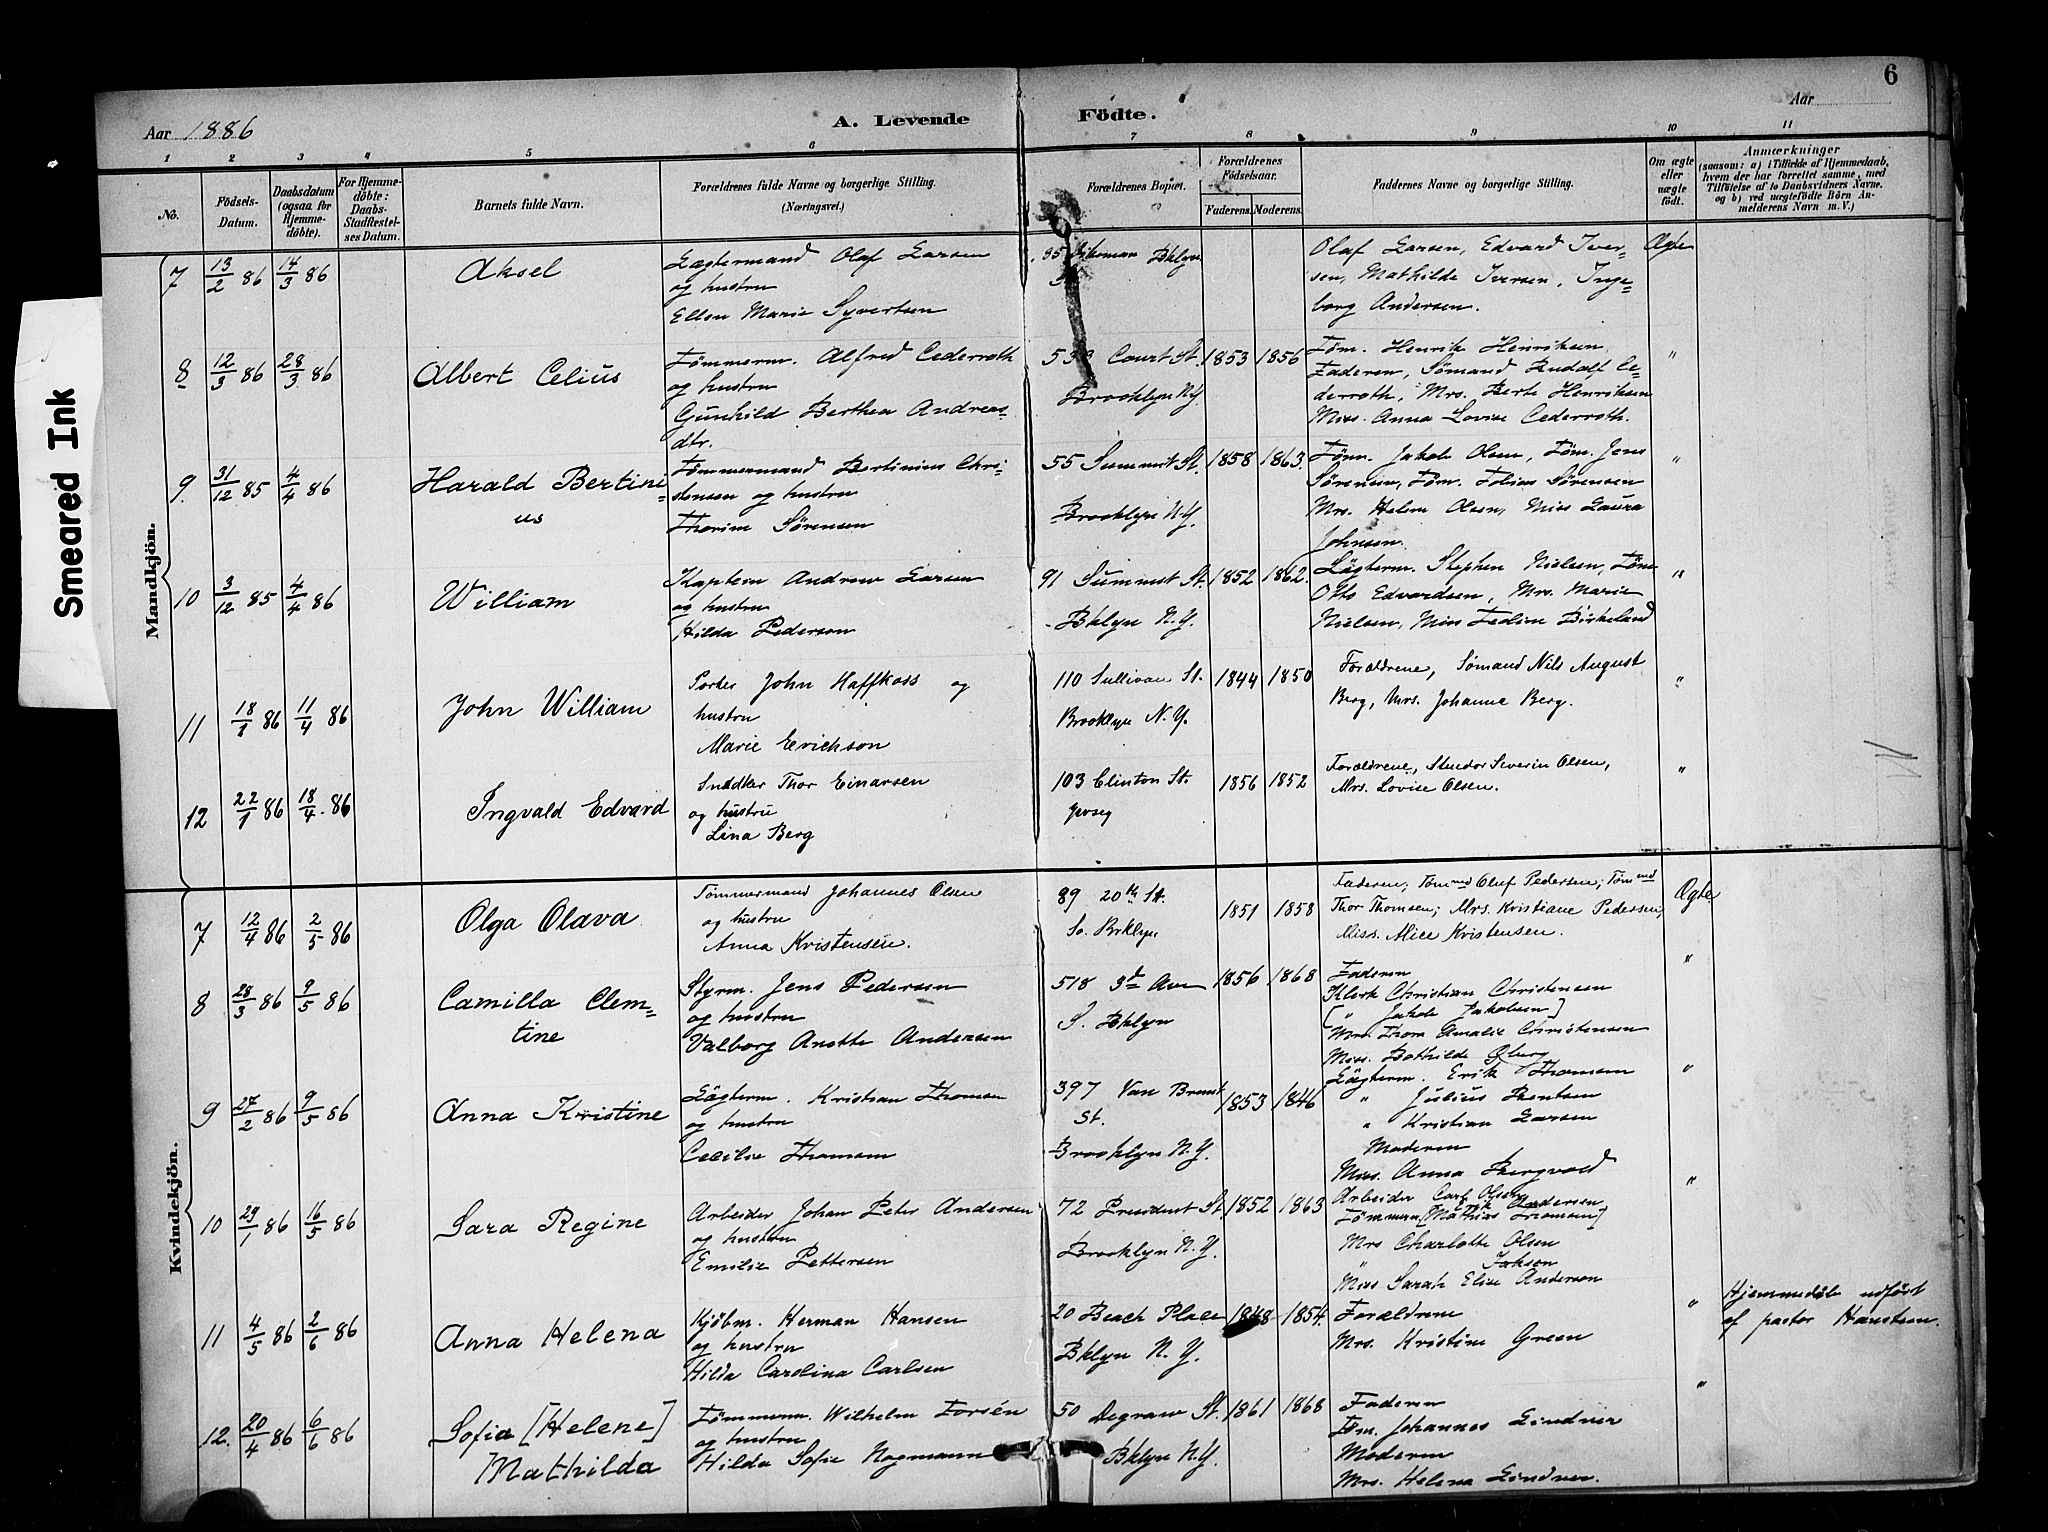 6
Aar 1886
A. Levende
Födte.
Aar
1 2 3 4 5 6 7 8 9 10 11
No.
Födsels-
Datum.
Daabsdatum
(ogsaa for
Hjemme-
döbte).
For Hjemme-
döbte:
Daabs-
Stadfæstel-
ses Datum.
Barnets fulde Navn.
Forældrenes fulde Navne og borgerlige Stilling.
(Næringsvei.)
Forældrenes Bopæl.
Forældrenes
Födselsaar.
Faderens. Moderens.
Faddernes Navne og borgerlige Stilling.
Om ægte
eller
uægte
födt.
Anmærkninger
(saasom: a) i Tilfælde af Hjemmedaab,
hvem der har forrettet samme, med
Tilföielse af to Daabsvidners Navne.
og b) ved uægtefödte Börn An-
melderens Navn m. V.)
Smeared Ink
Mandkjön.
7 13/2 86 14/3 86 Aksel
Lægtermand Olaf Larsen
og hustru
Ellen Marie Syvertsen
Bklyn
Olaf Larsen, Edvard Iver-
sen, Mathilde Iversen, Inge-
borg Andersen.
Ægte
8 12/3 86 28/3 86 Albert Celius
Tömmerm. Alfred Cederroth
og hustru
Gunhild Berthea Andreas-
dtr.
Court St.
Brooklyn N.Y.
1853 1856
Töm. Henrik Henriksen,
Faderen, Sömand Rudolf Ce-
derroth, Mrs. Berte Henriksen
Miss. Anna Lovise Cederroth.
"
9. 31/12 85 4/4 86 Harald Bertini-
us
Tömmermand Bertinius Chri-
stensen og hustru
Thorine Sörensen
55 Summit St.
Brooklyn N.Y.
1858 1863.
Töm. Jakob Olsen, Töm. Jens
Sörensen, Töm. Tobias Sörensen
Mrs. Helene Olsen, Miss Laura
Johnsen.
"
10 3/12 85 4/4 86 William
Kaptein Andrew Larsen
og hustru
Hilda Pedersen
91 Summit St.
Bklyn N.Y.
1852 1862.
Lägterm. Stephen Nielsen, Töm.
Otto Edvardsen, Mrs. Marie
Nielsen, Miss Birkeland
"
11 18/1 86 11/4 86 John William
Porter John Haffkoss og
hustru
Marie Erichson
110 Sullivan St.
Brooklyn N.Y.
1844 1850
Forældrene, Sömand Nils August
Berg, Mrs. Johanne Berg.
"
12 22/1 86 18/4 86 Ingvald Edvard
Snedker Thor Einarsen
og hustru
Lina Berg
103 Clinton St.
1856 1852
Forældrene, Severin Olsen,
Mrs. Lovise Olsen.
"
Kvindekjön.
7 12/4 86 2/5 86 Olga Olava
Tömmermand Johannes Olsen
og hustru
Anna Kristensen.
89 20th St.
So. Brklyn.
1851 1858
Faderen; Tömmd Oluf Pedersen; Tömmd
Thor Thomsen; Mrs. Kristiane Pedersen,
Miss. Alice Kristensen.
Ægte
8 28/3 86 9/5 86 Camilla Clem-
tine
Styrm. Jens Pedersen
og hustru
Valborg Anette Andersen
518 3d Ave
S. Bklyn
1856 1868
Faderen
Klerk Christian Christensen
[ " Jakob Jakobsen]
Mrs. Thom Amalie Christensen
Miss. Bothilde Oberg
"
9 27/2 86 9/5 86 Anna Kristine
Lägterm. Kristian Thomsen
og hustru
Cecilie Thomsen
397 Van Brunt
St.
Brooklyn N.Y.
1853 1846
Lägterm. Erik Thomsen
" Julius Bentsen
" Kristian Larsen
Moderen
Miss. Anna Bergvold
"
10 29/1 86 16/5 86 Sara Regine
Arbeider Johan Peter Andersen
og hustru
Emilie Pettersen
72 President St.
Brooklyn N.Y.
1852 1863
Arbeider Carl Olsen
Erik Andersen
Tömmerm [Mathias Thomsen]
Mrs Charlotte Olsen
" Jakson
Miss Sarah Elise Anderson
"
11 4/5 86 2/6 86 Anna Helena
Kjøbm. Herman Hansen
og hustru
Hilda Carolina Carlsen
20 Beach Place
Bklyn N.Y.
1848 1854.
Forældrene
Mrs. Kristine Green
"
Hjemmedåb udført
af pastor Hansteen.
12. 20/4 86 6/6 86 Sofia [Helene]
Mathilda
Tömmerm. Wilhelm Forsén
og hustru
Hilda Sofie Nagmann
50 Degraw St.
Bklyn N.Y.
1861 1868
Faderen
Töm. Johannes Lindner
Moderen
Mrs. Helena Lindner.
"